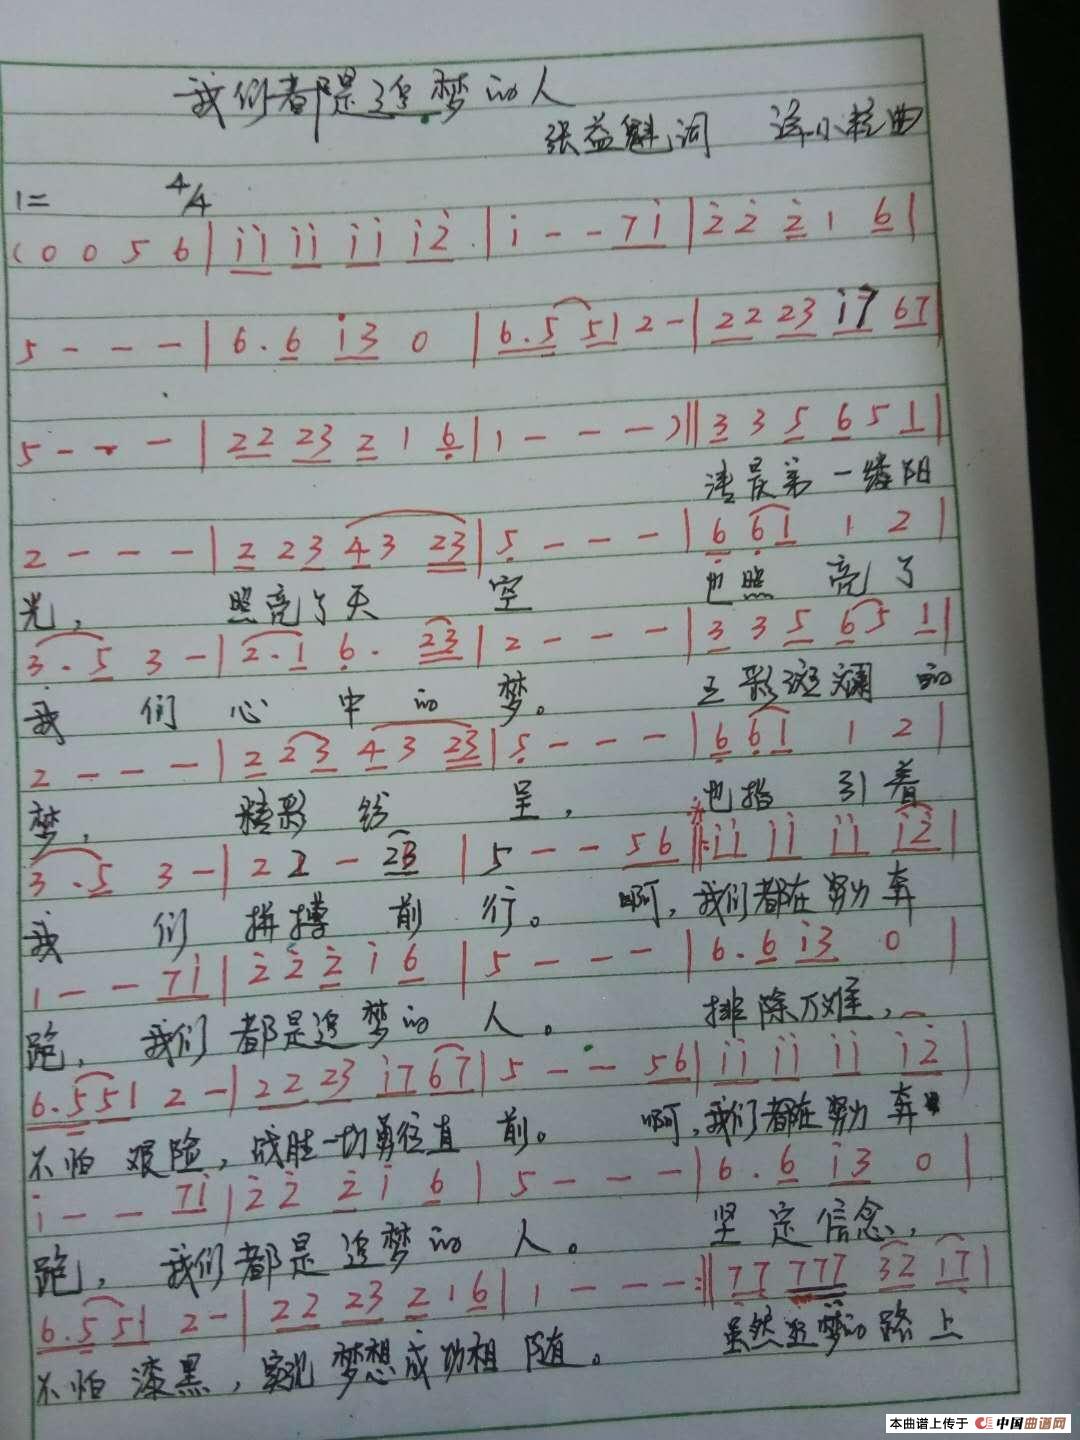 我们都是追梦的人
张益魁词 小 曲
1= 4/4
(0 0 5 6 | i i i i i i i 2 | i - - 7 i | 2 2 2 1 6 |
5 - - - | 6. 6 i 3 0 | 6. 5 5 1 2 - | 2 2 2 3 i 7 6 7 |
5 - - - | 2 2 2 3 2 1 6 | 1 - - - ) || 3 3 5 6 5 1 |
清晨第一缕阳
2 - - - | 2 2 3 4 3 2 3 | 5 - - - | 6 6 1 1 2 |
光, 照亮了天 空 也照 亮了
3. 5 3 - | 2. 1 6. 2 3 | 2 - - - | 3 3 5 6 5 1 |
我 们 心 中 的 梦。 五彩斑斓 的
2 - - - | 2 2 3 4 3 2 3 | 5 - - - | 6 6 1 1 2 |
梦, 精彩 纷 呈, 也指 引着
3. 5 3 - | 2 2 - 2 3 | 5 - - 5 6 ||: i i i i i i i 2 |
我 们 拼搏 前 行。 啊, 我们都在努力 奔
1 - - 7 i | 2 2 2 i 6 | 5 - - - | 6. 6 i 3 0 |
跑, 我们 都是追梦的 人。 排除万难,
6. 5 5 1 2 - | 2 2 2 3 i 7 6 7 | 5 - - 5 6 | i i i i i i i 2 |
不怕 艰险, 战胜一切勇往直 前。 啊, 我们都在努力 奔
i - - 7 i | 2 2 2 i 6 | 5 - - - | 6. 6 i 3 0 |
跑, 我们都是 追梦的 人。 坚 定信念,
6. 5 5 1 2 - | 2 2 2 3 2 1 6 | 1 - - - :|| 7 7 7 7 7 3 2 1 7 |
不怕 漆黑, 实现 梦想成功相 随。 虽然追梦的 路上
本曲谱上传于 中国曲谱网